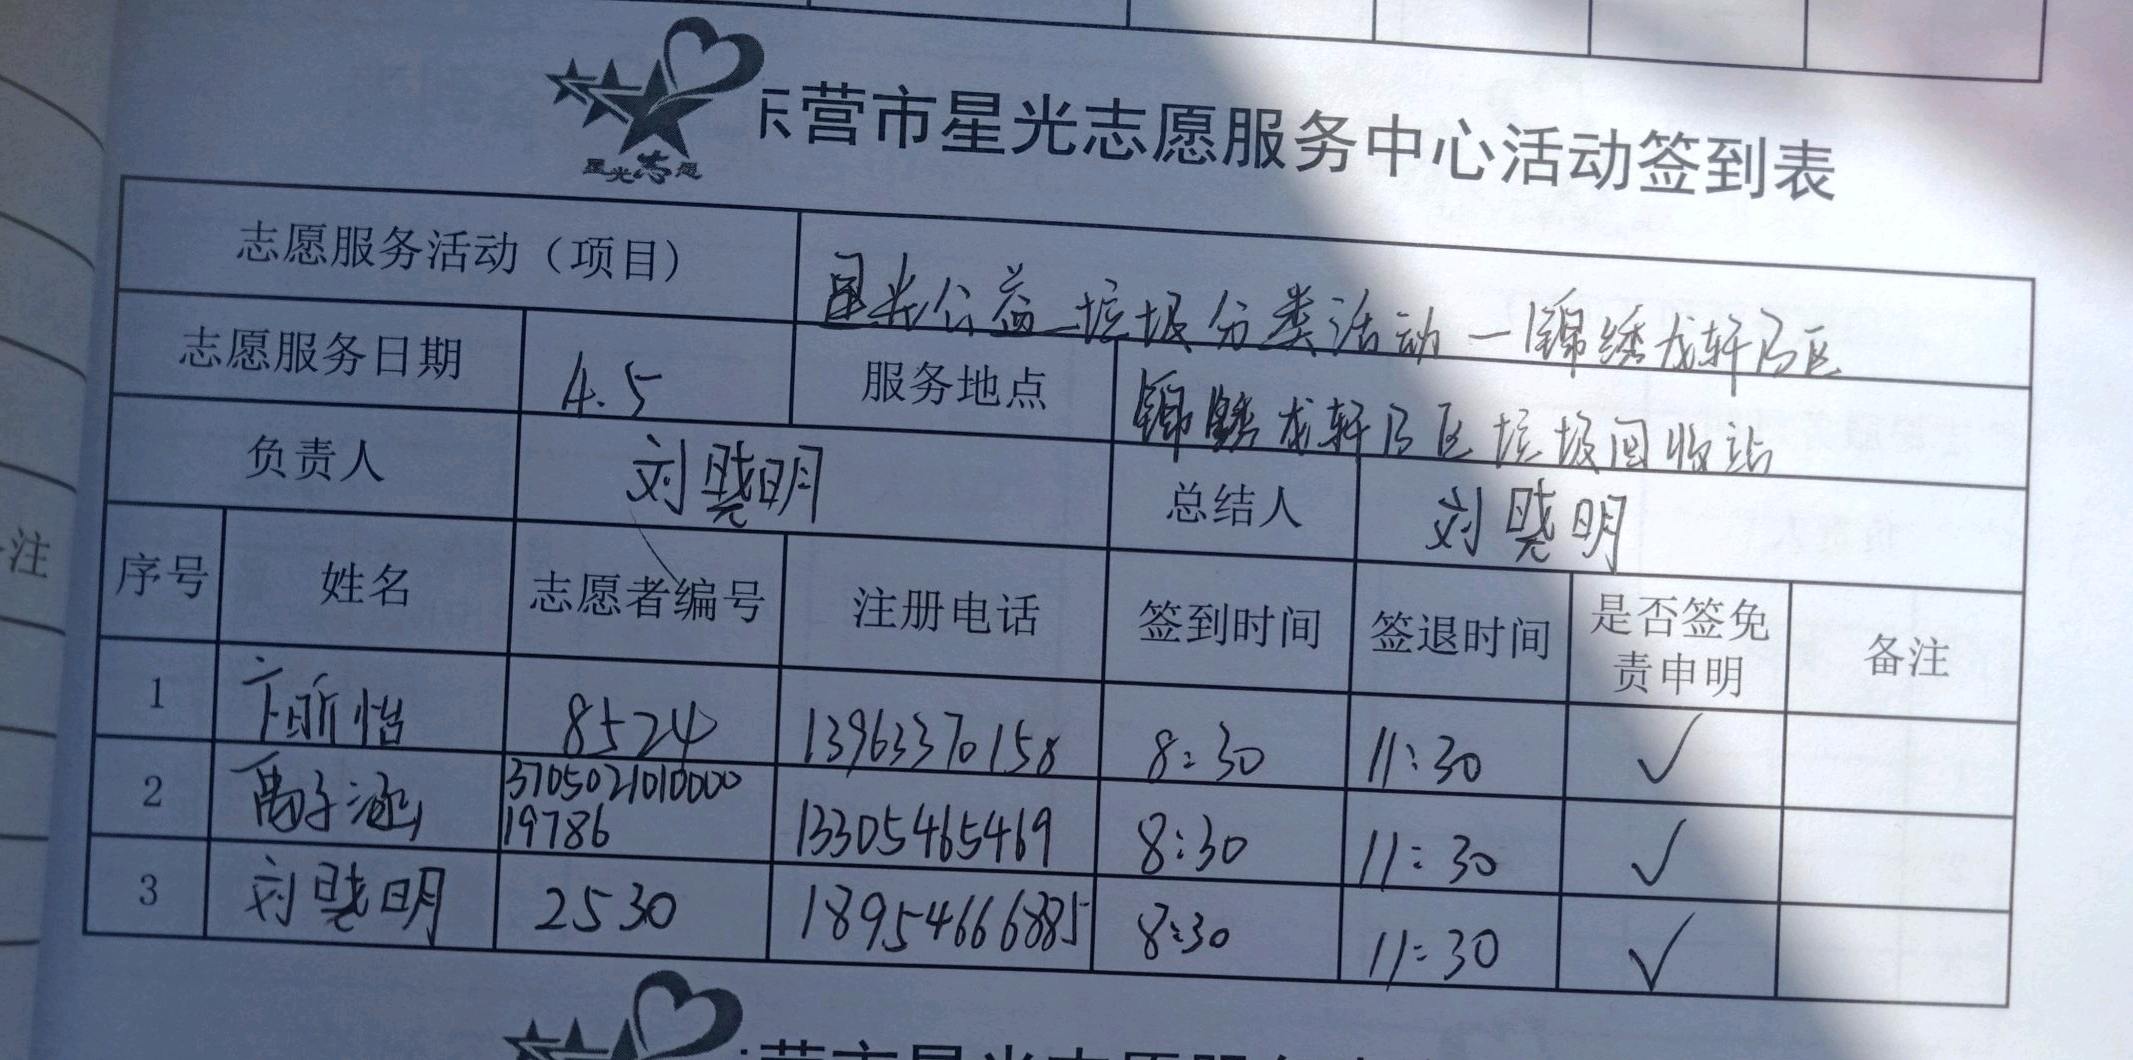 星光志愿
东营市星光志愿服务中心活动签到表
志愿服务活动（项目） 星光公益垃圾分类活动一锦绣龙轩B区
志愿服务日期 4.5 服务地点 锦绣龙轩B区垃圾回收站
负责人 刘晓明 总结人 刘晓明
序号 姓名 志愿者编号 注册电话 签到时间 签退时间 是否签免
责申明 备注
1 卞昕怡 8524 13963370158 8:30 11:30 ✓
2 禹子涵 3705021010000
19786 13305465469 8:30 11:30 ✓
3 刘晓明 2530 18954666885 8:30 11:30 ✓
注